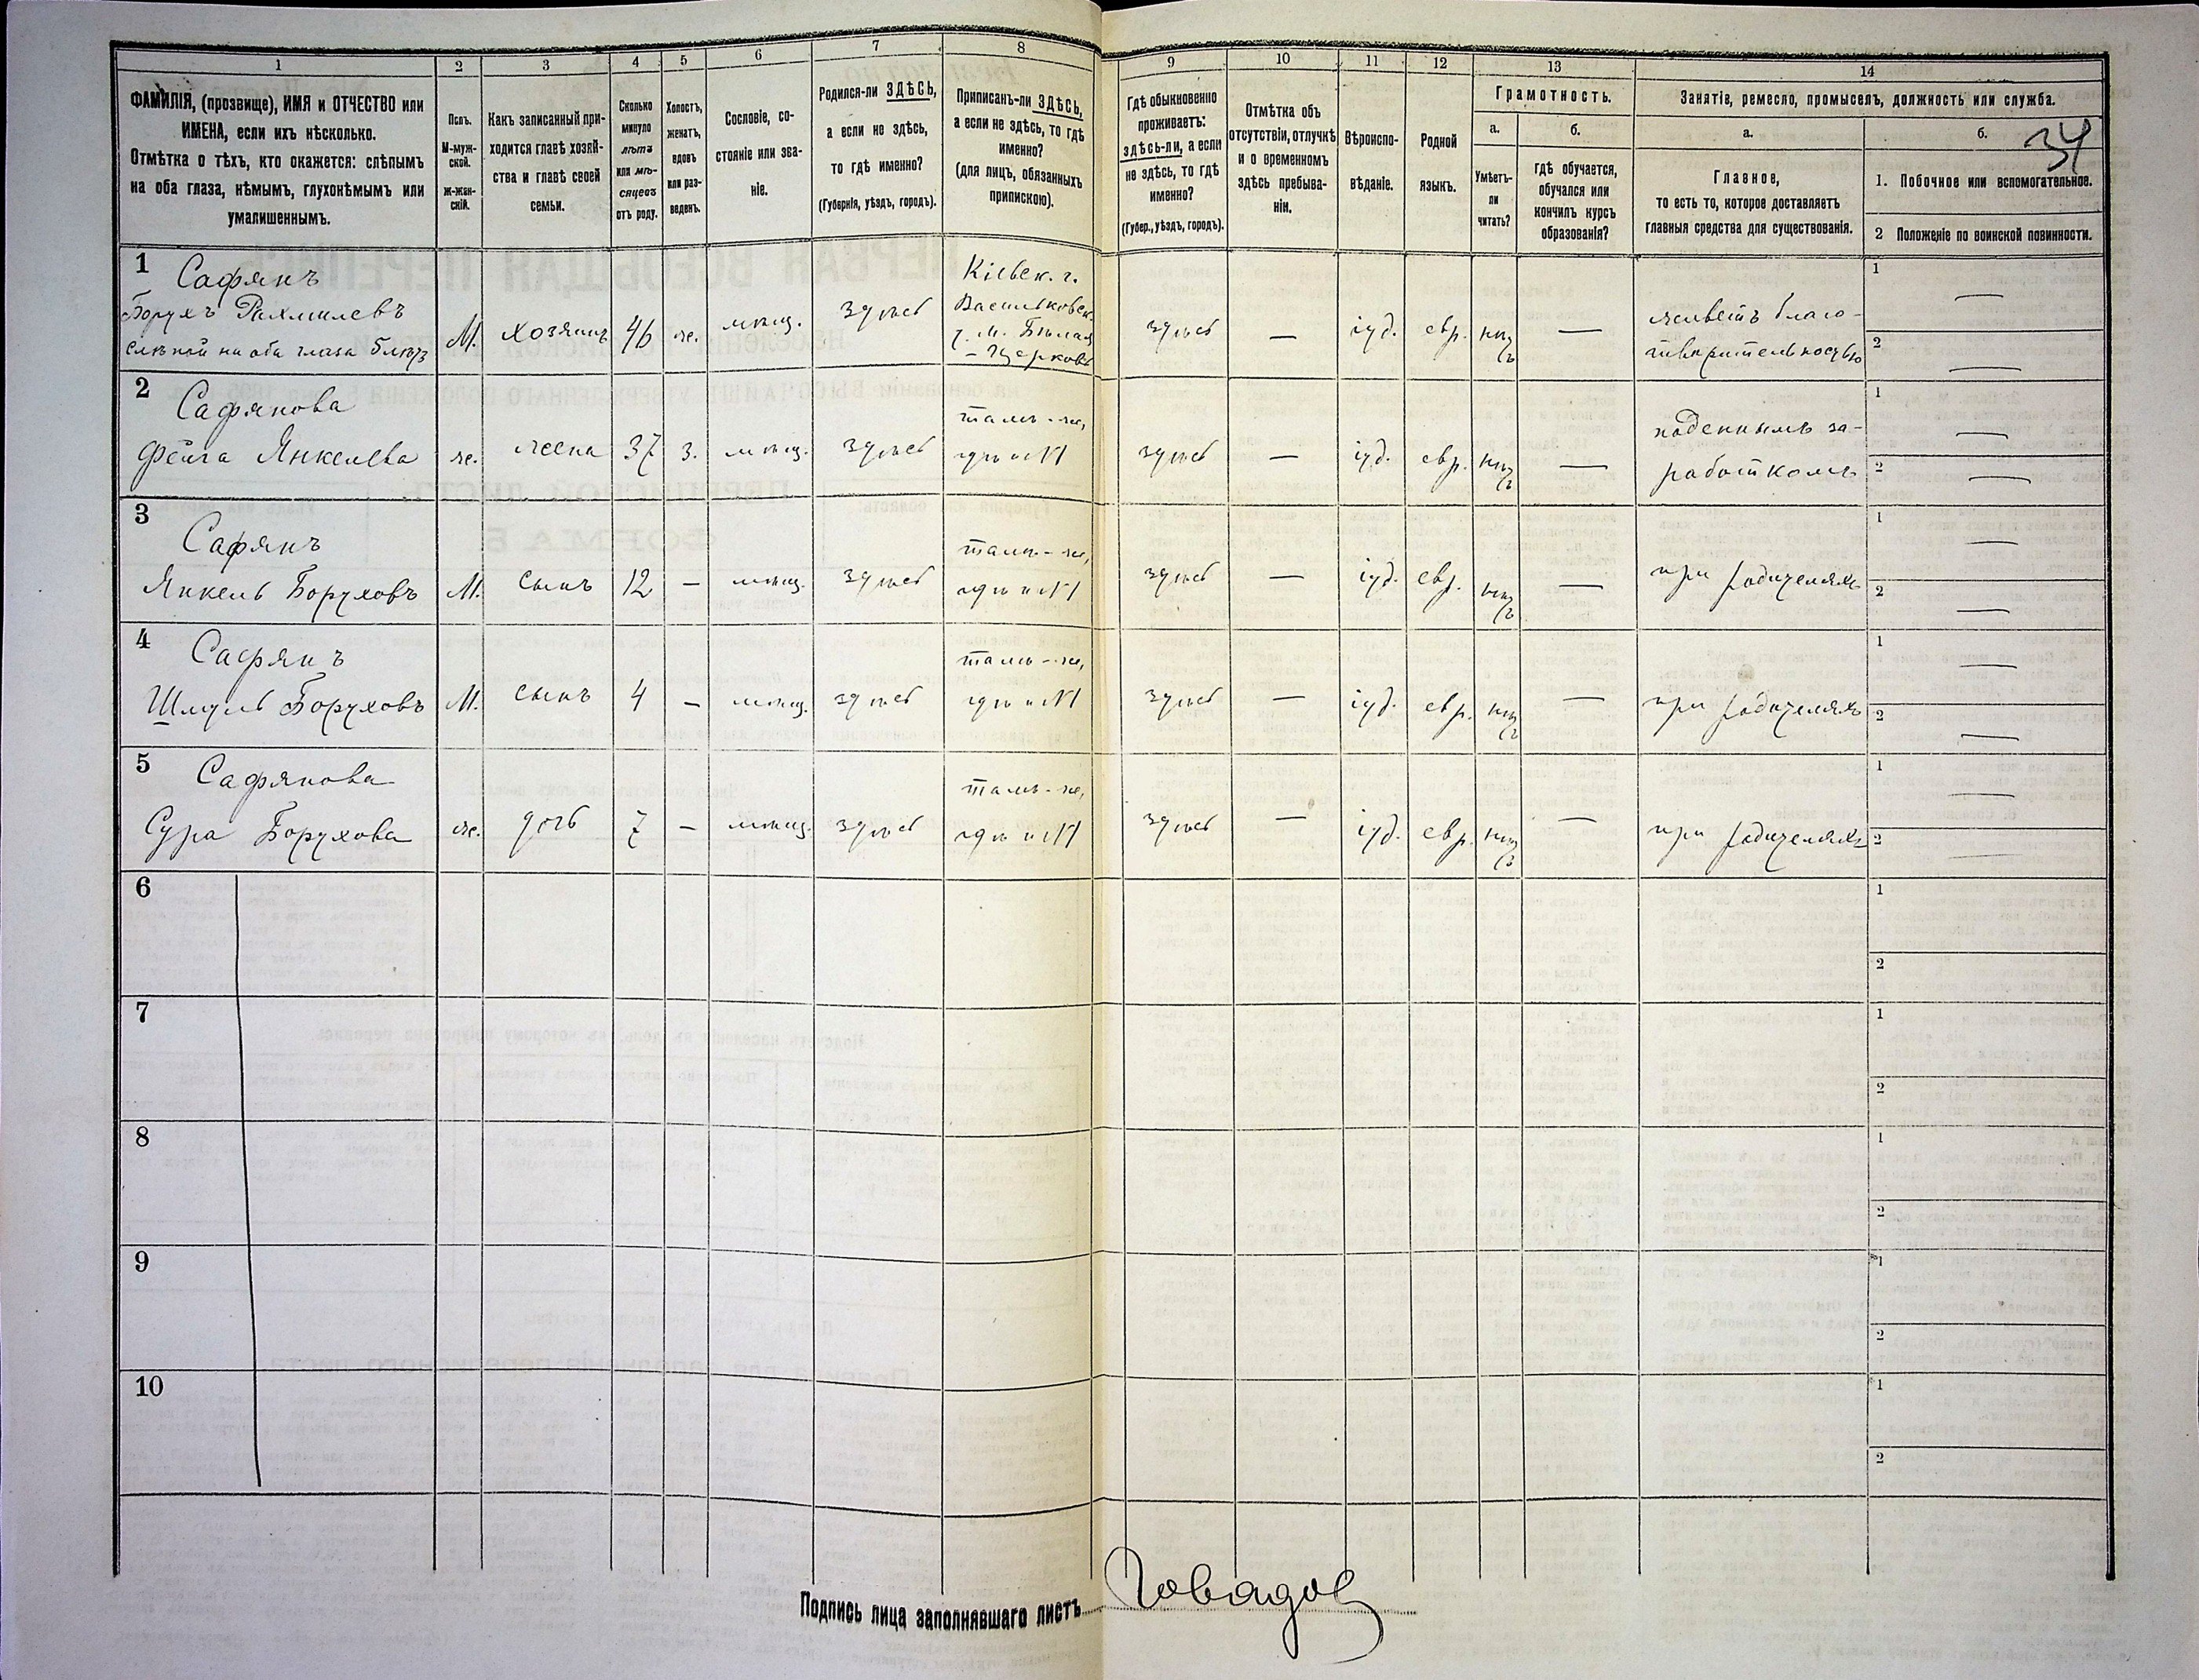 1
2
3
4
5
6
7
8
9
10
11
12
13
14
ФАМИЛІЯ, (прозвище), ИМЯ и ОТЧЕСТВО или
ИМЕНА, если ихъ нѣсколько.
Отмѣтка о тѣхъ, кто окажется: слѣпымъ
на оба глаза, нѣмымъ, глухонѣмымъ или
умалишеннымъ.
Полъ.
М-муж-
ской.
ж-жен-
скій.
Какъ записанный при-
ходится главѣ хозяй-
ства и главѣ своей
семьи.
Сколько
минуло
лѣтъ
или мѣ-
сяцевъ
отъ роду.
Холостъ,
женатъ,
вдовъ
или раз-
веденъ.
Сословіе, со-
стояніе или зва-
ніе.
Родился-ли ЗДѢСЬ,
а если не здѣсь,
то гдѣ именно?
(Губернія, уѣздъ, городъ).
Приписанъ-ли ЗДѢСЬ,
а если не здѣсь, то гдѣ
именно?
(для лицъ, обязанныхъ
припискою).
Гдѣ обыкновенно
проживаетъ:
здѣсь-ли, а если
не здѣсь, то гдѣ
именно?
(Губер., уѣздъ, городъ).
Отмѣтка объ
отсутствіи, отлучкѣ
и о временномъ
здѣсь пребыва-
ніи.
Вѣроиспо-
вѣданіе.
Родной
языкъ.
Грамотность.
а.
Умѣетъ-
ли
читать?
б.
гдѣ обучается,
обучался или
кончилъ курсъ
образованія?
Занятіе, ремесло, промыселъ, должность или служба.
а.
Главное,
то есть то, которое доставляетъ
главныя средства для существованія.
б.
34
1. Побочное или вспомогательное.
2 Положеніе по воинской повинности.
1
Сафянъ
Борухъ Рахмилевъ
слѣпой на оба глаза
М.
хозяинъ
46
же.
мѣщ.
здѣсь
Кіевск. г.
Васильковск.
у. м. Бѣлая
- Церковь
здѣсь
—
іуд.
евр.
нѣтъ
—
живетъ благо-
творительностью
1 —
2 —
2
Сафянова
Фейга Янкелева
же.
жена
37
з.
мѣщ.
здѣсь
тамъ-же,
гдѣ и №1
здѣсь
—
іуд.
евр.
нѣтъ
—
поденнымъ за-
работкомъ
1 —
2 —
3
Сафянъ
Янкель Боруховъ
М.
сынъ
12
—
мѣщ.
здѣсь
тамъ-же,
гдѣ и №1
здѣсь
—
іуд.
евр.
нѣтъ
—
при родителяхъ
1 —
2 —
4
Сафянъ
Шмуль Боруховъ
М.
сынъ
4
—
мѣщ.
здѣсь
тамъ-же,
гдѣ и №1
здѣсь
—
іуд.
евр.
нѣтъ
—
при родителяхъ
1 —
2 —
5
Сафянова
Сура Борухова
же.
дочь
7
—
мѣщ.
здѣсь
тамъ-же,
гдѣ и №1
здѣсь
—
іуд.
евр.
нѣтъ
—
при родителяхъ
1 —
2 —
6
1
2
7
1
2
8
1
2
9
1
2
10
1
2
Подпись лица заполнявшаго листъ